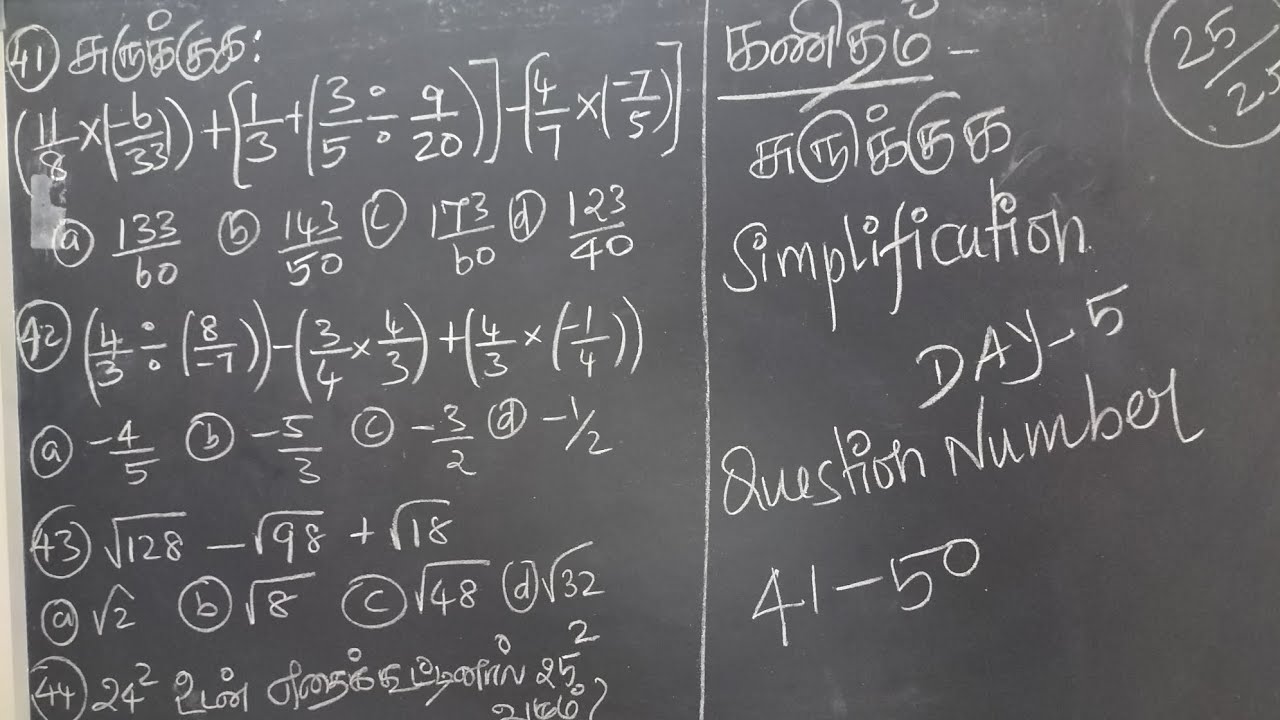 41) சுருக்குக:
(11/8 × (-6/33)) + [1/3 + (3/5 ÷ 9/20)] - [4/7 × (-7/5)]
a) 133/60 b) 143/50 c) 173/60 d) 123/40
42) (4/3 ÷ (8/-7)) - (3/4 × 4/3) + (4/3 × (-1/4))
a) -4/5 b) -5/3 c) -3/2 d) -1/2
43) √128 - √98 + √18
a) √2 b) √8 c) √48 d) √32
44) 24² உடன் எதைக்கூட்டினால் 25²
ஆகும்?
கணிதம் -
சுருக்குக
Simplification
DAY - 5
Question Number
41 - 50
25/25